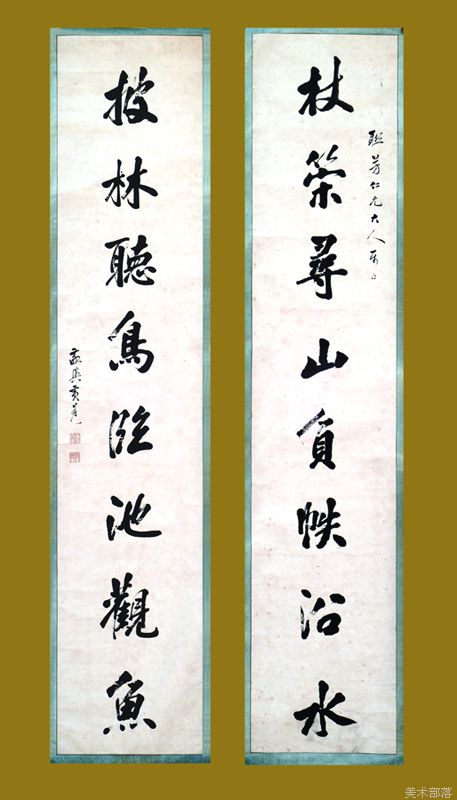 杖策尋山負帙沿水
芳仁兄大人
披林聽鳥臨池觀魚
美术部落